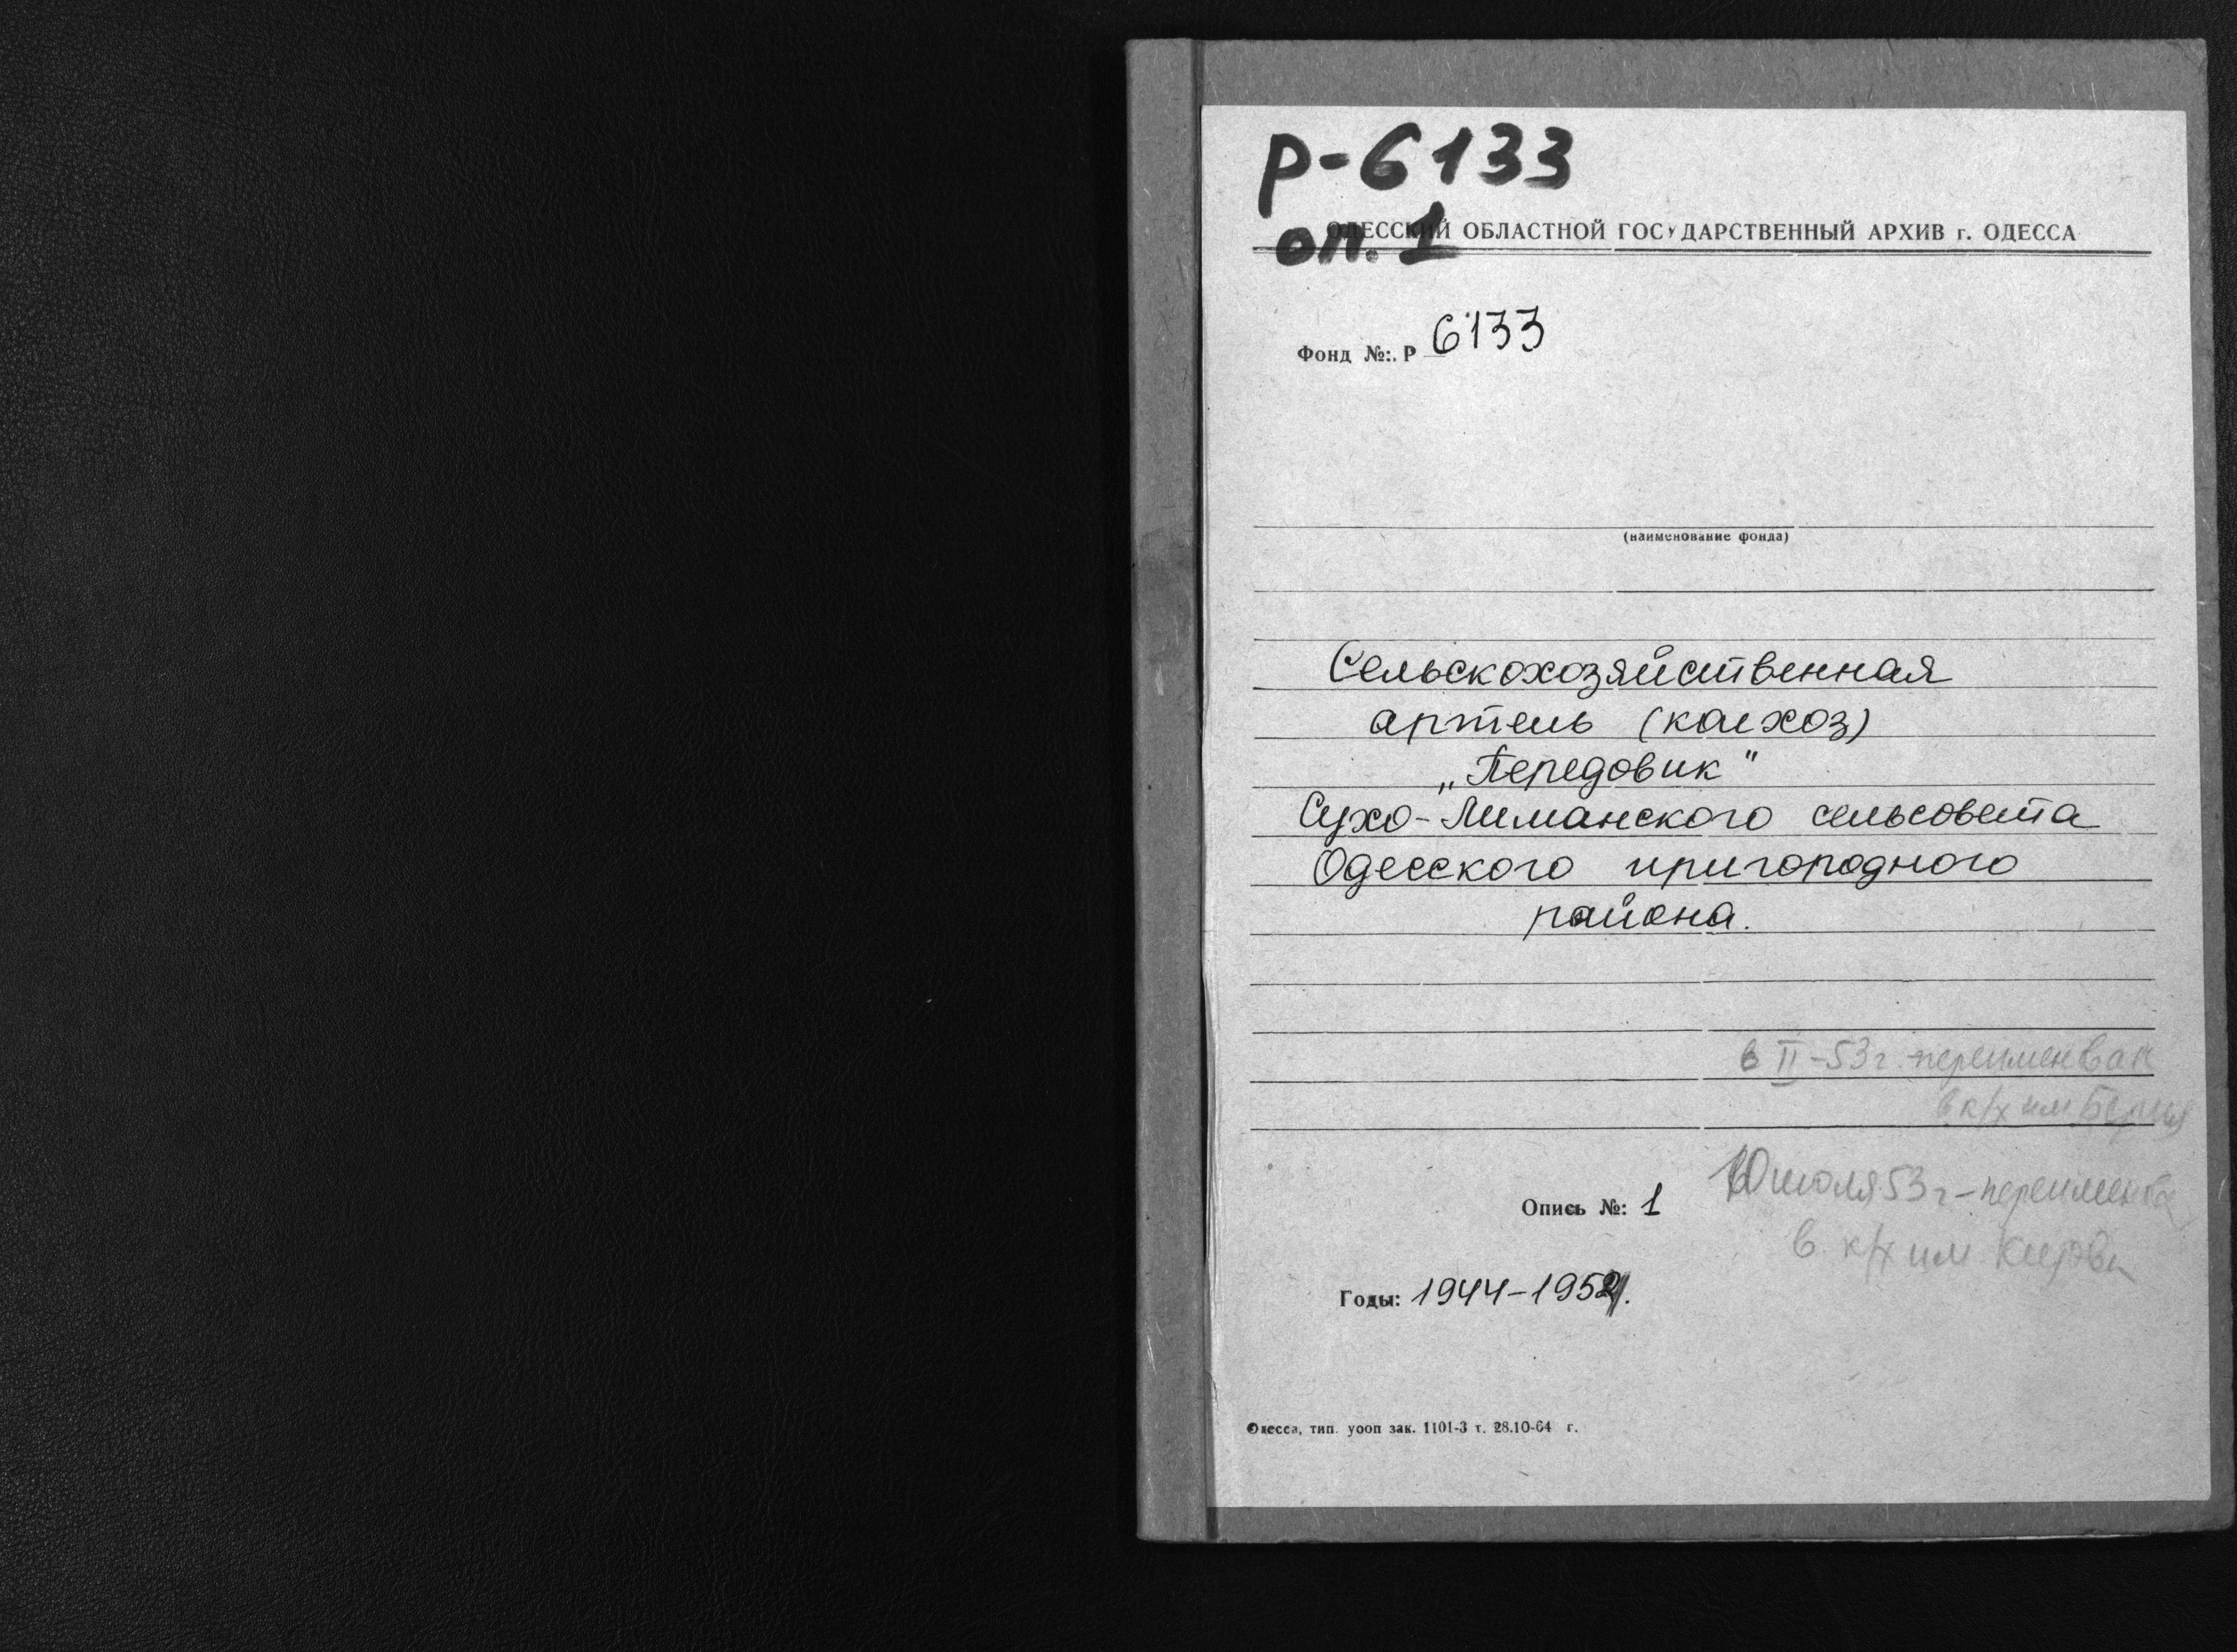 Р-6133
оп. 1
ОДЕССКИЙ ОБЛАСТНОЙ ГОСУДАРСТВЕННЫЙ АРХИВ г. ОДЕССА
Фонд №: Р 6133
(наименование фонда)
Сельскохозяйственная
артель (колхоз)
„Передовик"
Сухо-Лиманского сельсовета
Одесского пригородного
района.
в II-53 г. переименван
в к/х им Берия
июля 53 г -
в к/х им. Кирова
Опись №: 1
Годы: 1944-1952
Одесса, тип. уооп зак. 1101-3 т. 28.10-64 г.